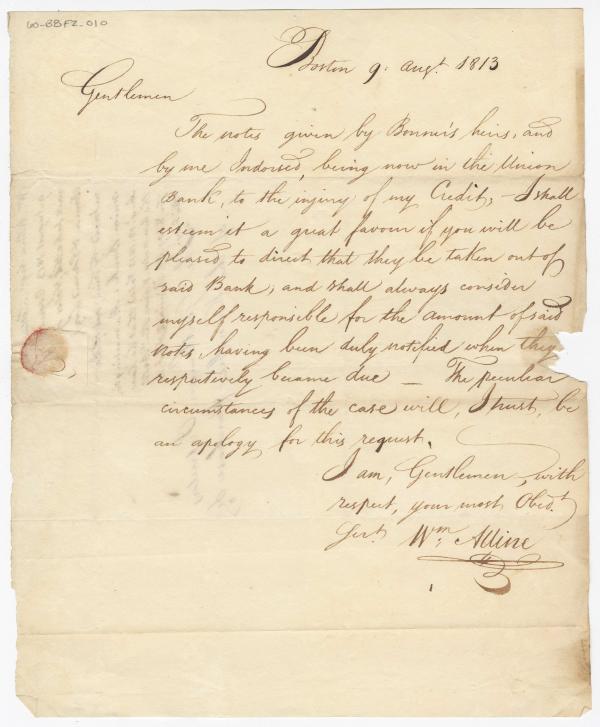 60-BBFZ-010
Boston 9. Augt. 1813
Gentlemen
The notes given by Bonner's heirs, and
by me Indorsed, being now in the Union
Bank, to the injury of my Credit, – I shall
esteem it a great favour if you will be
pleased, to direct that they be taken out of
said Bank, and shall always consider
myself responsible for the amount of said
notes, having been duly notified when they
respectively became due – The peculiar
circumstances of the case will, I trust, be
an apology for this request.
I am, Gentlemen, with
respect, your most Obedt.
Servt. Wm. Alline